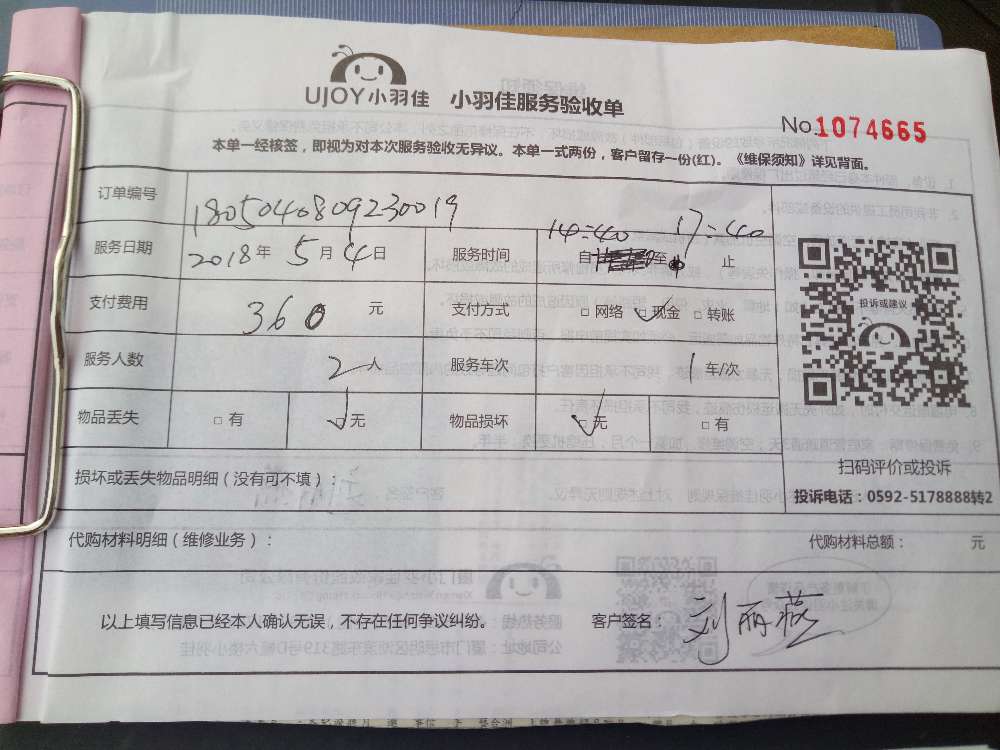 UJOY小羽佳 小羽佳服务验收单
No.1074665
本单一经核签，即视为对本次服务验收无异议。本单一式两份，客户留存一份(红)。《维保须知》详见背面。
订单编号 1805040809230019
服务日期 2018年 5月 4日 服务时间 自 14:40 至 17:40 止
支付费用 360 元 支付方式 □网络 ☑现金 □转账
投诉或建议
服务人数 2人 服务车次 1 车/次
物品丢失 □有 ☑无 物品损坏 ☑无 □有
损坏或丢失物品明细（没有可不填）：
扫码评价或投诉
投诉电话：0592-5178888转2
代购材料明细（维修业务）： 代购材料总额： 元
以上填写信息已经本人确认无误，不存在任何争议纠纷。 客户签名： 刘丽燕